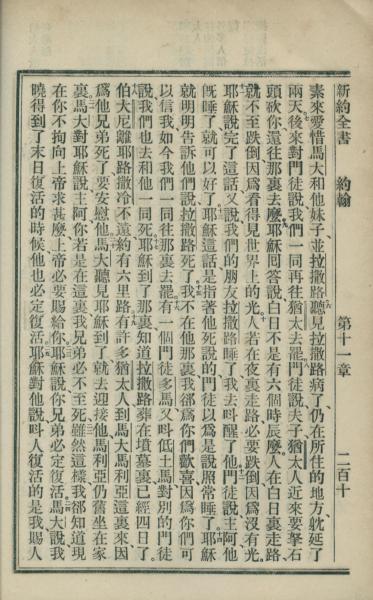 新約全書　約翰　第十一章　二百十
素來愛惜馬大和他妹子、並拉撒路聽見拉撒路病了仍在所住的地方、躭延了
兩天後來對門徒說我們一同再往猶太去罷門徒說夫子猶太人近來要拏石
頭砍你還往那裏去麼耶穌回答說白日不是有六個時辰麼人在白日裏走路
就不至跌倒因爲看得見世界上的光人若在夜裏走路必要跌倒因爲沒有光。
耶穌說完了這話又說我們的朋友拉撒路睡了我去呌醒了他門徒說主阿他
旣睡了就可以好了耶穌這話是指著他死說的門徒以爲是說照常睡了耶穌
就明明告訴他們說拉撒路死了我不在他那裏我爲你們歡喜因爲你們可
以信我如今我們一同往那裏去罷有一個門徒多馬又呌低土馬對別的門徒
說我們也去和他一同死耶穌到了那裏知道拉撒路葬在墳墓裏已經四日了
伯大尼離耶路撒冷不遠約有六里路有許多猶太人到馬大馬利亞這裏來因
爲他兄弟死了要安慰他馬大聽見耶穌到了就去迎接他馬利亞仍舊坐在家
裏馬大對耶穌說主阿你若是在這裏我兄弟必不至死雖然這樣我卻知道現
在你不拘向上帝求甚麼上帝必要賜給你耶穌說你兄弟必定復活馬大說我
曉得到了末日復活的時候他也必定復活耶穌對他說呌人復活的是我賜人